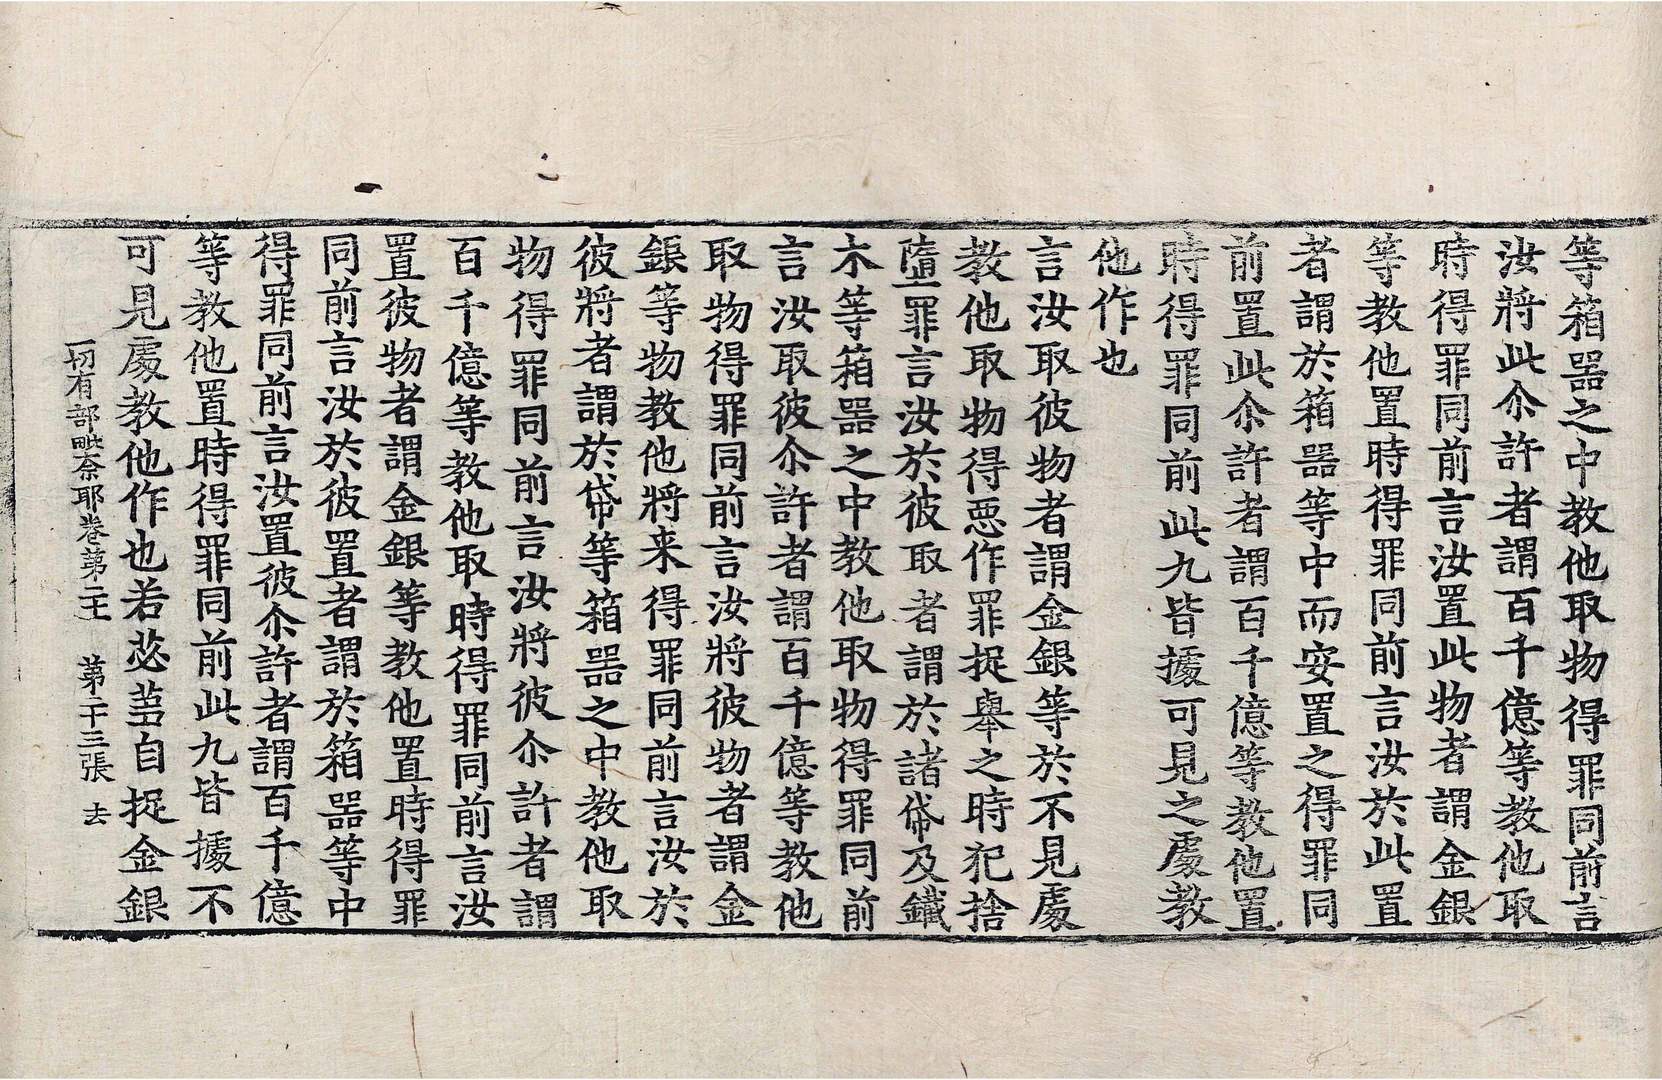 等箱器之中教他取物得罪同前言
汝將此尒許者謂百千億等教他取
時得罪同前言汝置此物者謂金銀
等教他置時得罪同前言汝於此置
者謂於箱器等中而安置之得罪同
前置此尒許者謂百千億等教他置
時得罪同前此九皆據可見之處教
他作也
言汝取彼物者謂金銀等於不見處
教他取物得惡作罪捉舉之時犯捨
墮罪言汝於彼取者謂於諸帒及鐵
木等箱器之中教他取物得罪同前
言汝取彼尒許者謂百千億等教他
取物得罪同前言汝將彼物者謂金
銀等物教他將来得罪同前言汝於
彼將者謂於帒等箱器之中教他取
物得罪同前言汝將彼尒許者謂
百千億等教他取時得罪同前言汝
置彼物者謂金銀等教他置時得罪
同前言汝於彼置者謂於箱器等中
得罪同前言汝置彼尒許者謂百千億
等教他置時得罪同前此九皆據不
可見處教他作也若苾蒭自捉金銀
一切有部毗奈耶卷第二十一 第二十三張 去